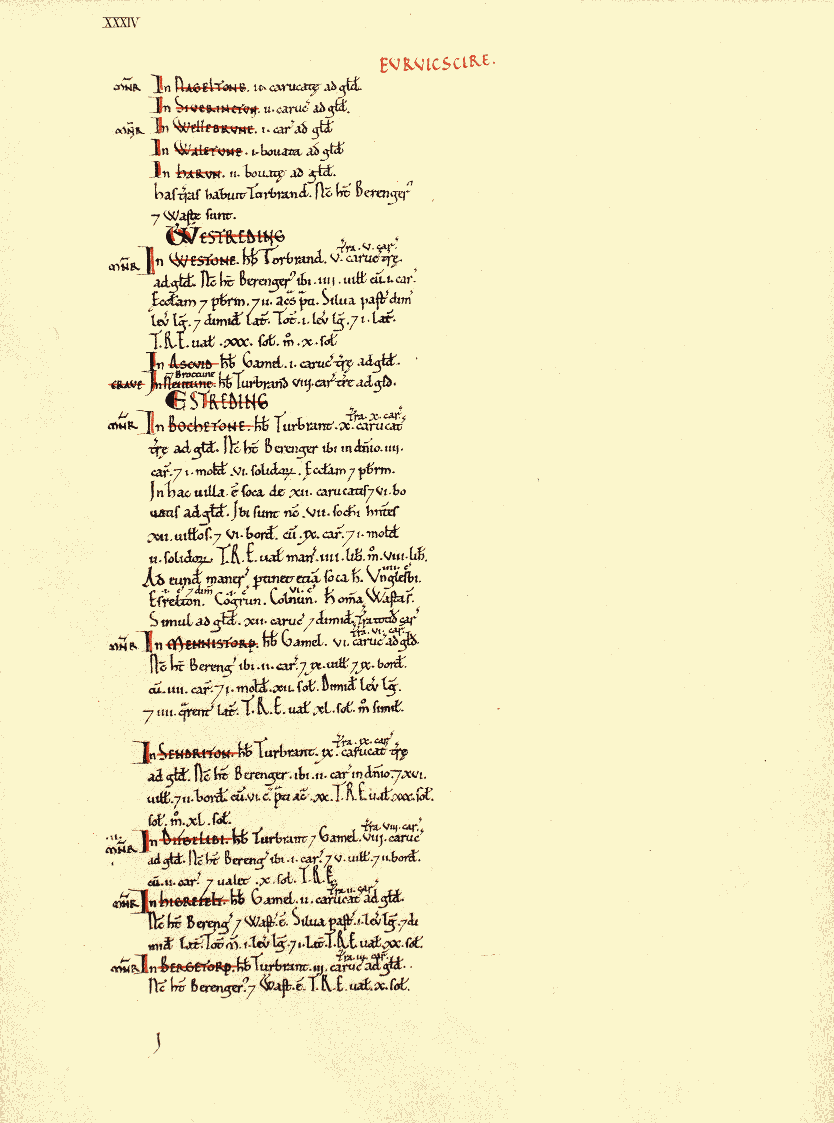 XXXIV
EVRVICSCIRE.
M̃NR In NAGELTONE. ii. carucatę ad gł̃d.
In SIVERINCTON. ii. caruc̃ ad gł̃d.
M̃NR In WELLEBRVNE. i. car̃ ad gł̃d
In WALETVNE. i. bouata ad gł̃d
In HARVN. ii. bouatę ad gł̃d.
has t̃ras habuit Torbrand. Ñc h̃t Berenger'
⁊ Waste sunt.
WESTREDING
M̃NR In WESTONE. hb̃ Torbrand. v. caruc̃ t̃rę. t̃ra. v. car̃.
ad gł̃d. Ñc h̃t Berenger' ibi. iiii. uiłł cũ. i. car̃.
Eccł̃am ⁊ pb̃rm. ⁊ ii. ac̃s p̃ti. Silua past̃ dim̃
leũ lg̃. ⁊ dimid̃ lat̃. Tot̃. i. leũ lg̃. ⁊ i. lat̃.
T.R.E. uał. xxx. soł. m̊. x. soł
In ASCVID hb̃ Gamel. i. caruc̃ t̃rę ad gł̃d.
CRAVE In Steintune. ⁊ Broctune hb̃ Turbrand viii. car̃ t̃re ad gł̃d.
ESTREDING
M̃NR In BOCHETONE. hb̃ Turbrant. x. carucat̃ t̃ra. x. car̃.
t̃rę ad gł̃d. Ñc h̃t Berenger ibi in dñio. iiii.
car̃. ⁊ i. mold̃ .vi. solidoꝝ. Eccł̃am ⁊ pb̃rm.
In hac uilla. ẽ soca de xii. carucatis ⁊ vi. bo
uatis ad gł̃d. Ibi sunt nc̃ .vii. soch̃i hñtes
xii. uiłłos. ⁊ vi. bord̃. cũ. ix. car̃. ⁊ i. molđ
ii. solidoꝝ T.R.E. uał maner̃. iiii. lib̃. m̊. viii. lib̃.
Ad eund̃ maner̃ ptinet etiã soca h̃. Vnglesbi.
Esrelton. Cogrun. Colnun. H̃ om̃a Wasta st̃.
Simul ad gł̃d. xii. caruc̃ ⁊ dimid̃. t̃ra totid̃ car̃
M̃NR In MENNISTORP. hb̃ Gamel. vi. caruc̃ ad gł̃d. t̃ra. vi. car̃.
Ñc h̃t Bereng' ibi. ii. car̃. ⁊ ix. uiłł ⁊ ix. bord̃.
cũ. iiii. car̃. ⁊ i. molđ. xii. soł. Dimid̃ leũ lg̃.
⁊ iiii. q̃rent' lat̃. T.R.E. uał. xl. soł. m̊ simił.
In SENDRITON. hb̃ Turbrant. ix. carucat̃ t̃rę t̃ra. ix. car̃
ad gł̃d. Ñc h̃t Berenger. ibi. ii. car̃ in dñio. ⁊ xvi.
uiłł. ⁊ ii. bord̃. cũ. vi. c̃. p̃ti ac̃. xx. T.R.E. uał. xxx. soł.
soł. m̊. xl. soł.
.ii. M̃NR In DVGELIBI. hb̃ Turbrant ⁊ Gamel. viii. caruc̃ t̃ra. viii. car̃.
ad gł̃d. Ñc h̃t Bereng' ibi. i. car̃. ⁊ v. uiłł. ⁊ ii. bord̃.
cũ. ii. car̃. ⁊ ualet .x. soł. T.R.E.
M̃NR In HIGREFELT. hb̃ Gamel. ii. carucat̃ ad gł̃d. t̃ra. ii. car̃
Ñc h̃t Bereng' ⁊ Wast̃. ẽ. Silua past̃. i. leũ lg̃. ⁊ di
mid̃ lat̃. Tot̃ m̃. i. leũ lg̃. ⁊ i. lat̃. T.R.E. uał. xx. soł.
M̃NR In BERGETORP. hb̃ Turbrant. iii. caruc̃ ad gł̃d. t̃ra. iii. car̃.
Ñc h̃t Berenger'. ⁊ Wast̃. ẽ. T.R.E. uał. x. soł.